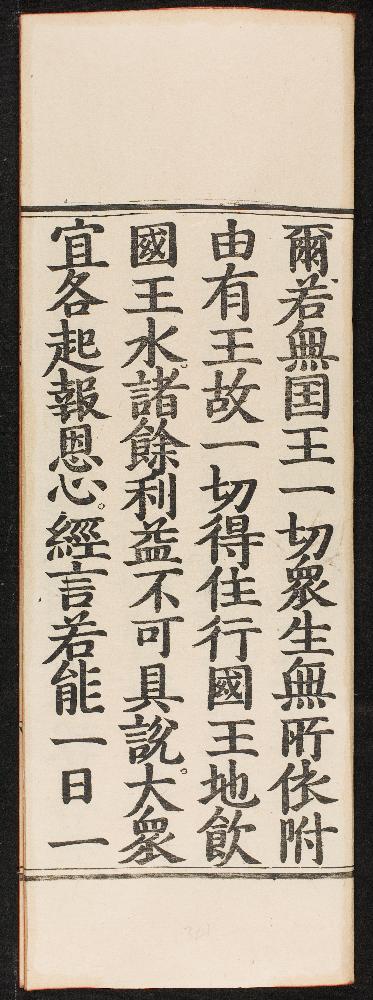 爾若無囯王一切衆生無所依附
由有王故一切得住行國王地飲
國王水。諸餘利益不可具說。大衆
宜各起報恩心。經言若能一日一